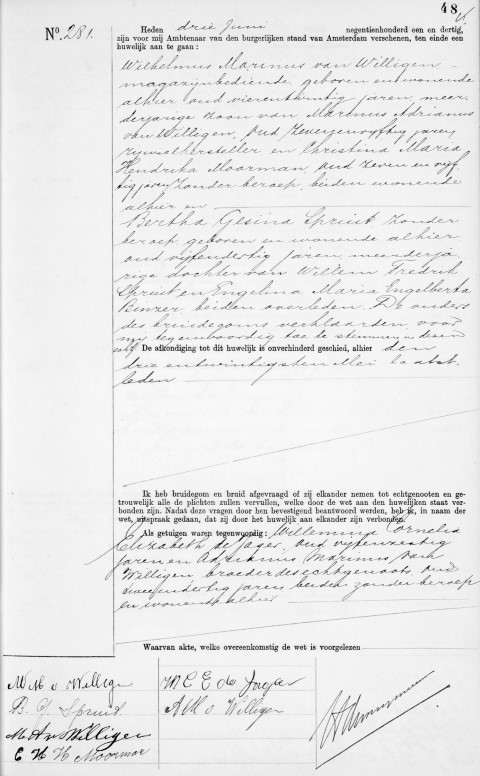 48
Nº. 281.
Heden drie Juni negentienhonderd een en dertig,
zijn voor mij Ambtenaar van den burgerlijken stand van Amsterdam verschenen, ten einde een
huwelijk aan te gaan:
Wilhelmus Marinus van Willigen,
magazijnbediende, geboren en wonende
alhier oud vierentwintig jaren, meer-
derjarige zoon van Marinus Adrianus
van Willegen, oud zevenenvijftig jaren,
rijwielhersteller en Christina Maria
Hendrika Moorman, oud zeven en vijf-
tig jaren zonder beroep, beiden wonende
alhier en
Bertha Gesina Spruit zonder
beroep, geboren en wonende alhier
oud vijfendertig jaren, meerderja
rige dochter van Willem Fredrik
Spruit en Engelina Maria Engelberta
Binzer beiden overleden. De ouders
des bruidegoms verklaarden, voor
mij tegenwoordig toe te stemmen in dezen
echt. De afkondiging tot dit huwelijk is onverhinderd geschied, alhier den
drie entwintigsten Mei laatst-
leden
Ik heb bruidegom en bruid afgevraagd of zij elkander nemen tot echtgenooten en ge-
trouwelijk alle de plichten zullen vervullen, welke door de wet aan den huwelijken staat ver-
bonden zijn. Nadat deze vragen door hen bevestigend beantwoord werden, heb ik, in naam der
wet, uitspraak gedaan, dat zij door het huwelijk aan elkander zijn verbonden.
Als getuigen waren tegenwoordig: Willemina Cornelia
Elizabeth de Jager, oud vijfenzestig
jaren en Adrianus Marinus van
Willigen, broeder des echtgenoots, oud
tweeendertig jaren beiden zonder beroep
en wonende alhier
Waarvan akte, welke overeenkomstig de wet is voorgelezen
W M v Willigen
B. G Spruit
M A v Willigen
C M H Moorman
W C E de Jager
A M v Willigen